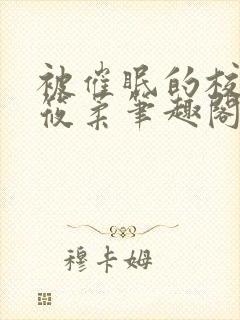 被催眠的校
筱柔笔趣阁
穆卡姆